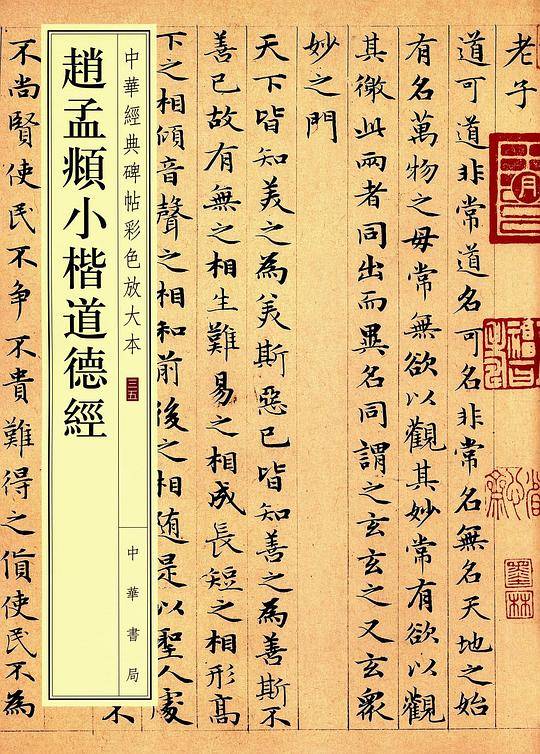 趙孟頫小楷道德經
中華經典碑帖彩色放大本
三五
中華書局
老子
道可道非常道名可名非常名無名天地之始
有名萬物之母常無欲以觀其妙常有欲以觀
其徼此兩者同出而異名同謂之玄玄之又玄衆
妙之門
天下皆知美之為美斯惡已皆知善之為善斯不
善已故有無之相生難易之相成長短之相形高
下之相傾音聲之相和前後之相随是以聖人處
不
不尚賢使民不争不貴難得之貨使民不為
墨林